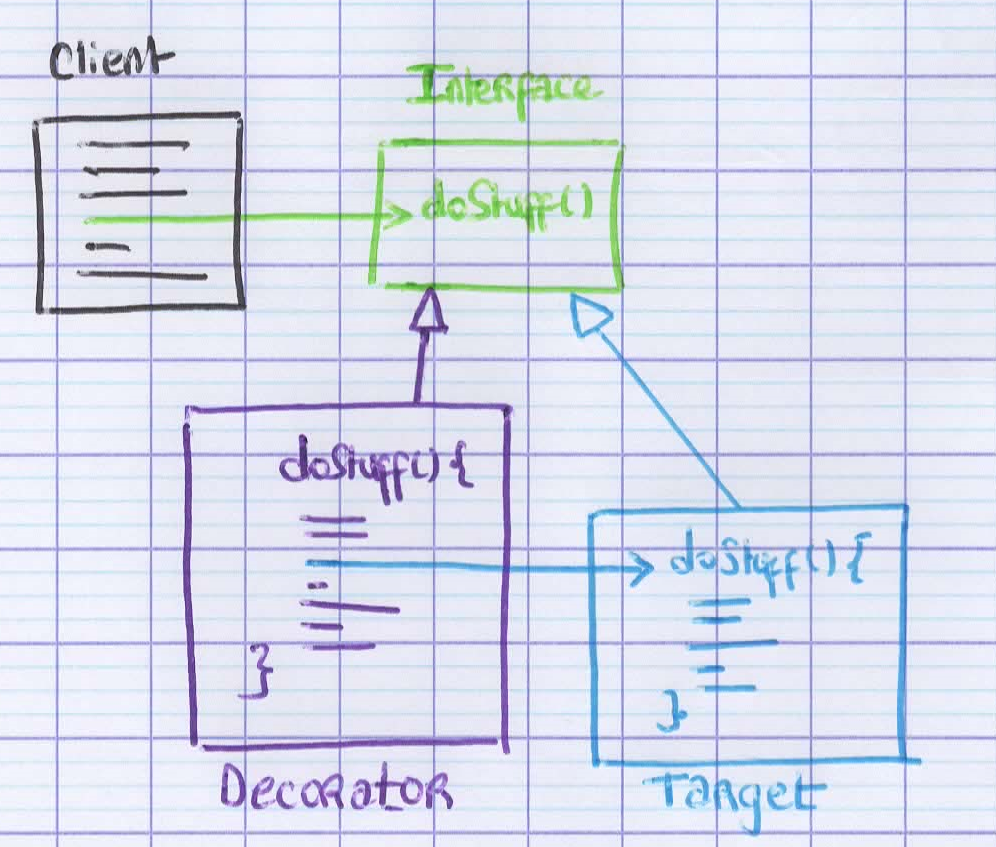 Client
Interface
doStuff()
doStuff() {
}
Decorator
doStuff() {
}
Target